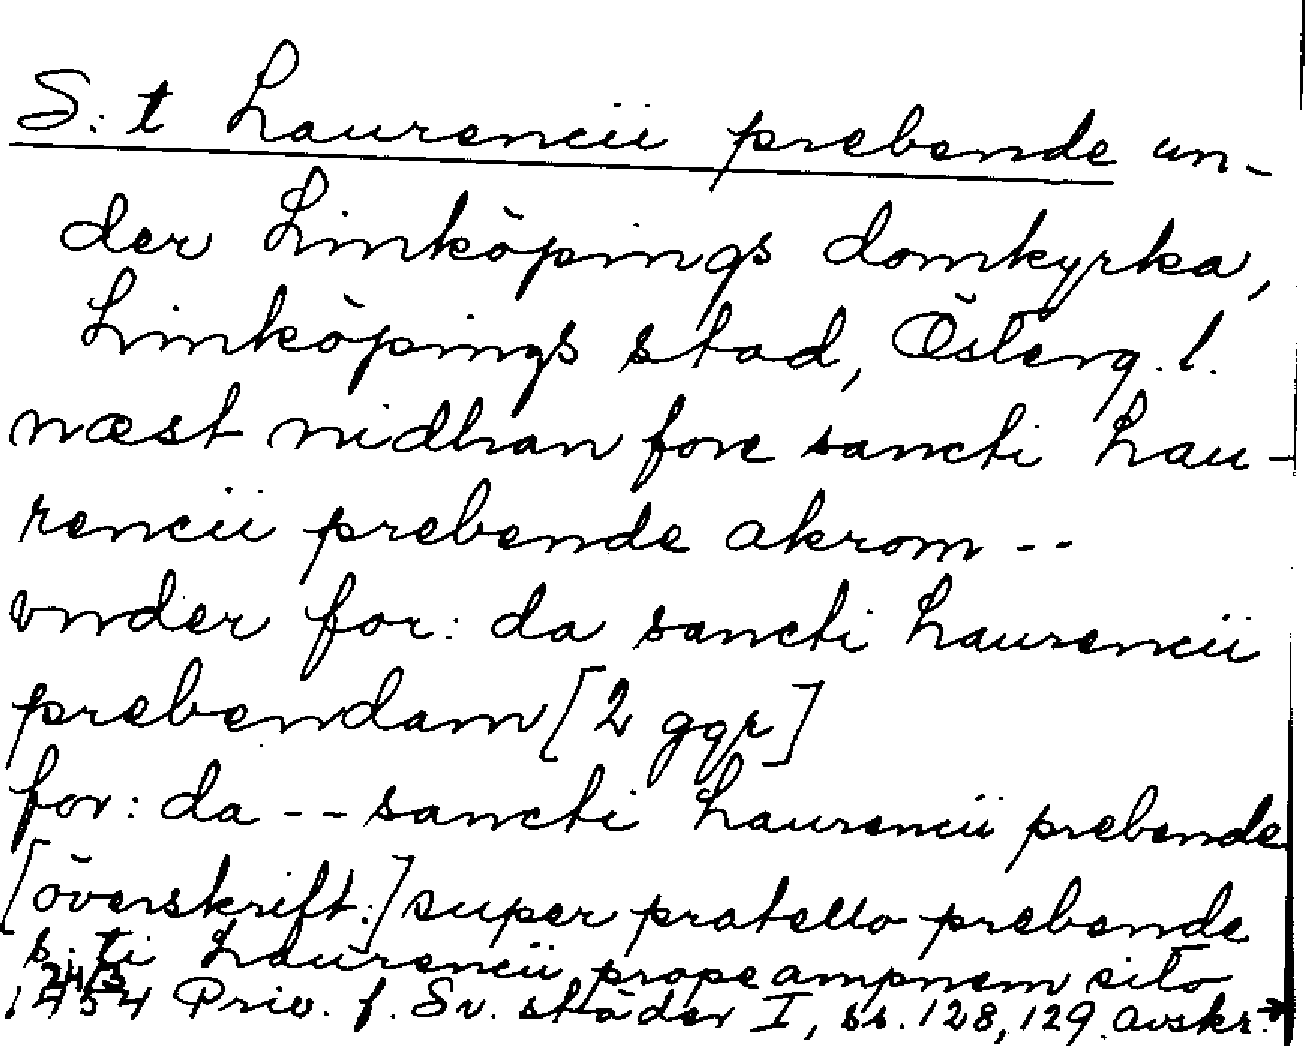 S:t Laurencii prebende un-
der Linköpings domkyrka,
Linköpings stad, Österg. l.
næst nidhan fore sancti Lau-
rencii prebende akrom --
vnder for: da sancti Laurencii
prebendam [2 ggr]
for: da -- sancti Laurencii prebende
[överskrift:] super pratello prebende
s:ti Laurencii prope ampnem sito
24/3
1454 Priv. f. Sv. städer I, ss. 128, 129. avskr.